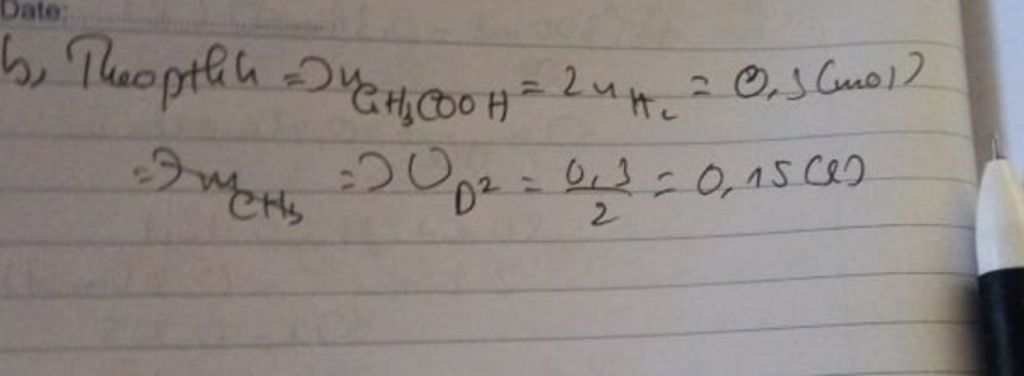 Date:
b, Theo pthh => n CH₃COOH = 2n H₂ = 0,3 (mol)
=> m CH₃ => V D² = 0,3/2 = 0,15 (l)